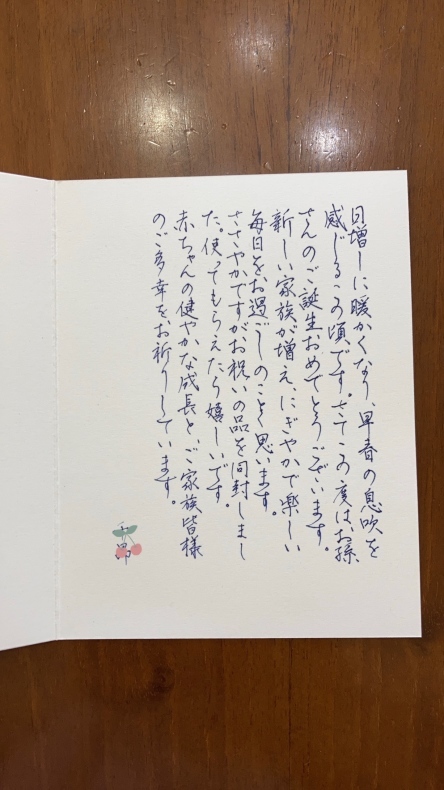 日増しに暖かくなり、早春の息吹を
感じるこの頃です。さてこの度は、お孫
さんのご誕生おめでとうございます。
新しい家族が増え、にぎやかで楽しい
毎日をお過ごしのことと思います。
ささやかですがお祝いの品を同封しまし
た。使ってもらえたら嬉しいです。
赤ちゃんの健やかな成長と、ご家族皆様
のご多幸をお祈りしています。